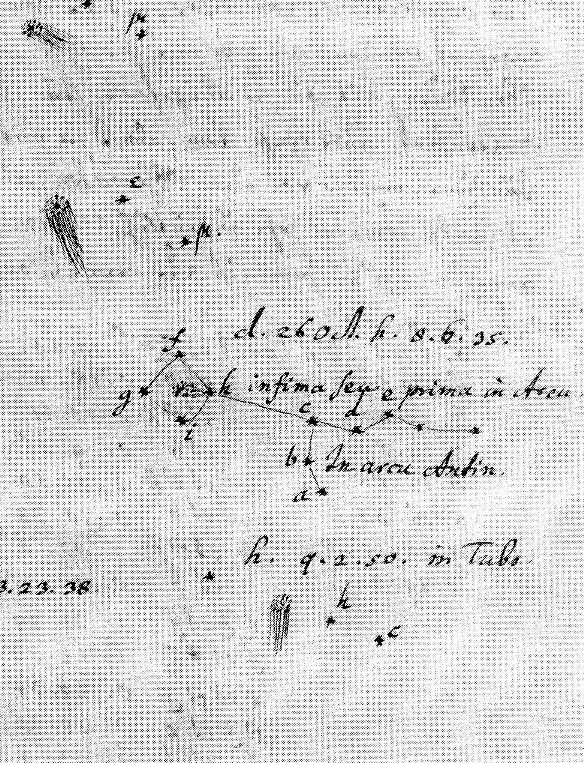 μ
e
μ.
d. 26 Oct. h. 8. 6. 35.
f
g h infima seq e prima in Arcu
c d
i
b In arcu Antin.
a
h. 9. 2. 50. in Tubo
3. 23. 38
h
c